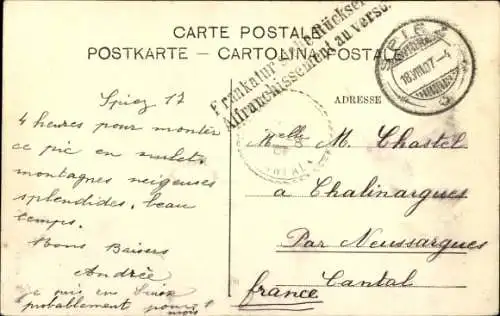 CARTE POSTALE
POSTKARTE - CARTOLINA POSTALE
Frankatur siehe Rückseite
Affranchissement au verso.
SPIEZ
18.VIII.07.-4
ADRESSE
Spiez 17
4 heures pour monter
ce pic en mulet,
montagnes neigeuses
splendides, beau
temps.
Bons Baisers
Andrée
je suis en Suisse
probablement pour 1
mois
Melle M. Chastel
à Chalinargues
Par Neussargues
Cantal
france